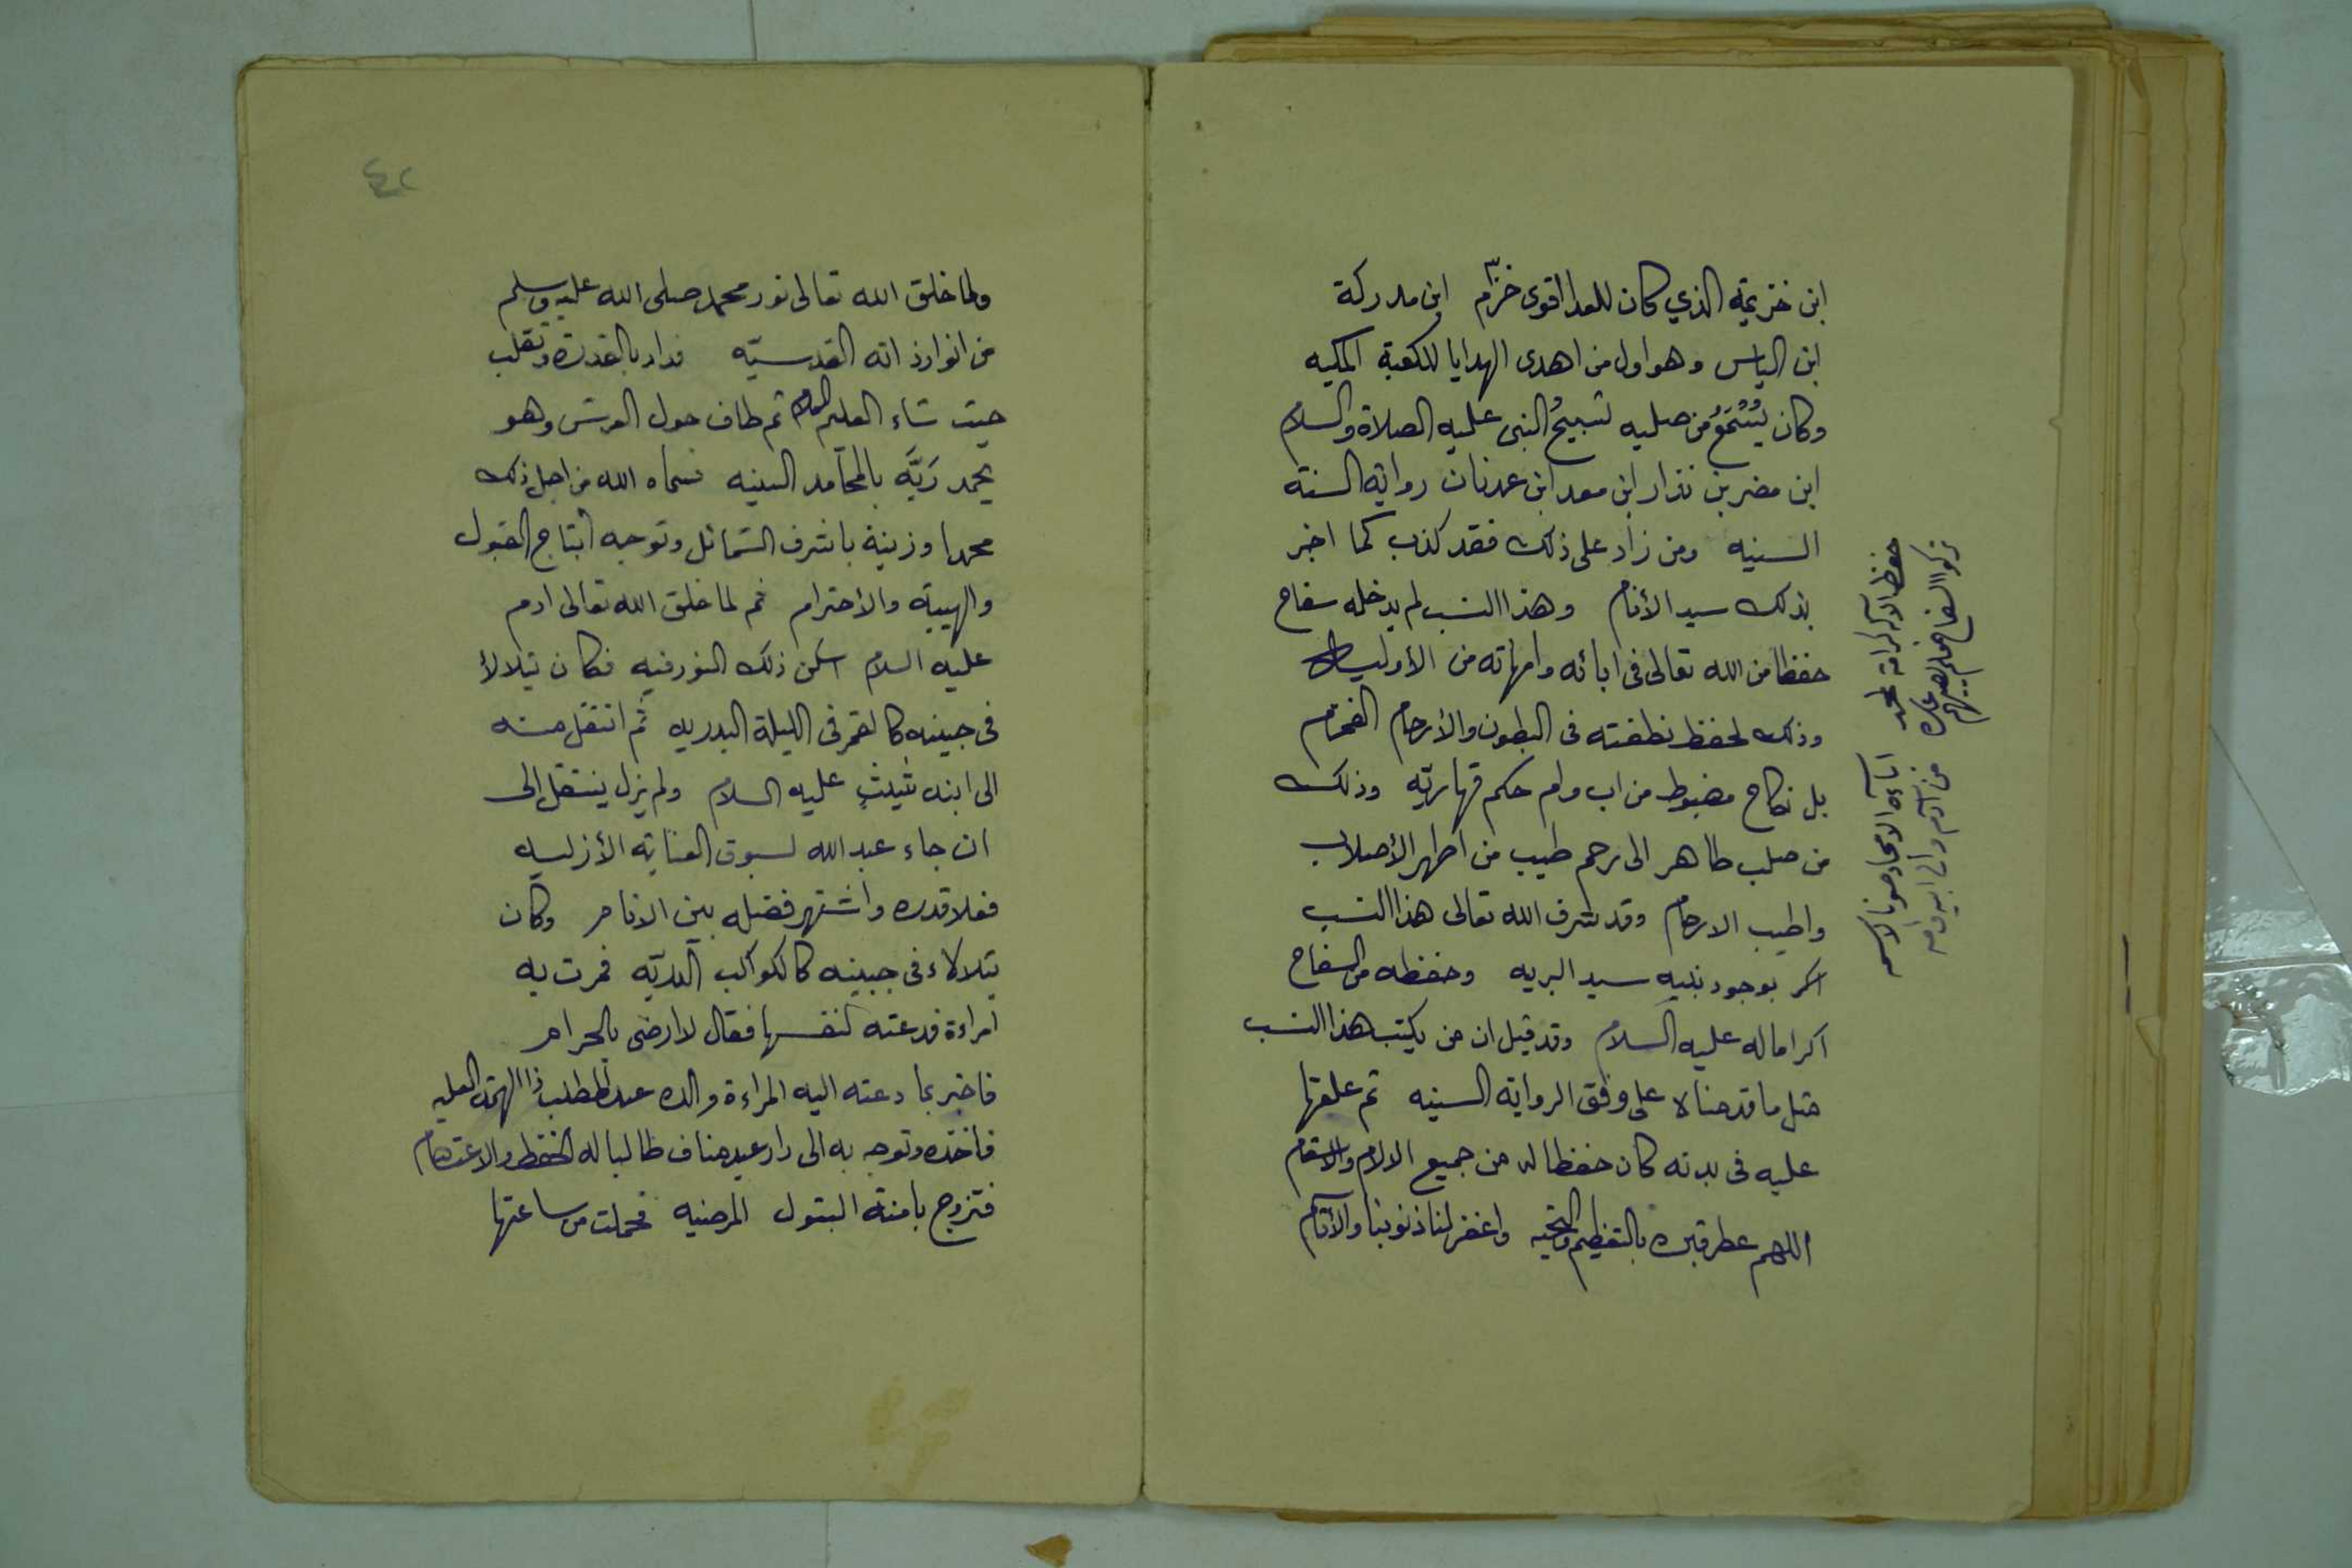 ابن خزيمة الذي كان للعدا اقوى خزّم ابن مدركة
ابن الياس وهو اول من اهدى الهدايا للكعبة المكيه
وكان يُسْتَمَعُ من صلبه تسبيحُ النبى عليه الصلاة والسلام
ابن مضر بن نزار ابن معد ابن عدنان رواية السنة
السنيه ومن زاد على ذلك فقد كذب كما اخبر
بذلك سيد الأنام وهذا النسب لم يدخله سفاح
حفظا من الله تعالى فى ابائه وامهاته من الأوليه
وذلك لحفظ نطفته فى البطون والأرحام الفخام
بل نكاح مضبوط من اب وام حكم قهاريّه وذلك
من صلب طاهر الى رحم طيب من اطهر الأصلاب
واطيب الارحام وقد شرف الله تعالى هذا النسب
اكر بوجود نبيه سيد البريه وحفظه من السفاح
اكراما له عليه السلام وقد قيل ان من يكتب هذا النسب
مثل ما قدمناه على وفق الرواية السنيه ثم علقها
عليه فى بدنه كان حفظا له من جميع الالام والاسقام
اللهم عطر قبره بالتعظيم والتحيه واغفر لنا ذنوبنا والأثام
حفظ الاله كرامة لمحمد اباءه الامجاد صونا لاسمه
تركوا السفاح فلم يصبهم عاره من آدم والى ابيه وامه
٤٢
ولما خلق الله تعالى نور محمد صلى الله عليه وسلم
من انوار ذاته القدسيّه فدار بالقدرة وتقلب
حيث شاء العليم العلام ثم طاف حول العرش وهو
يحمد رَبَّه بالمحامد السنيه فسماه الله من اجل ذلك
محمدا وزينه باشرف الشمائل وتوجه ابتاج القبول
والهيبة والأحترام ثم لما خلق الله تعالى ادم
عليه السلام اسكن ذلك النور فيه فكان يتلالأ
فى جبينه كالقمر فى الليلة البدريه ثم انتقل منه
الى ابنه شيث عليه السلام ولم يزل ينتقل الى
ان جاء عبد الله لسبوق العناية الأزليه
فعلا قدره واشتهر فضله بين الانام وكان
يتلالاء فى جبينه كالكواكب الدريّه فمرت به
امراءة فدعته لنفسها فقال لا ارضى بالحرام
فاخبر بما دعته اليه المراءة والده عبد المطلب ذا الهمة العليه
فاخذه وتوجه به الى دار عبد مناف طالبا له الحفظ والاعتصام
فتزوج بامنة البتول المرضيه فحملت من ساعتها